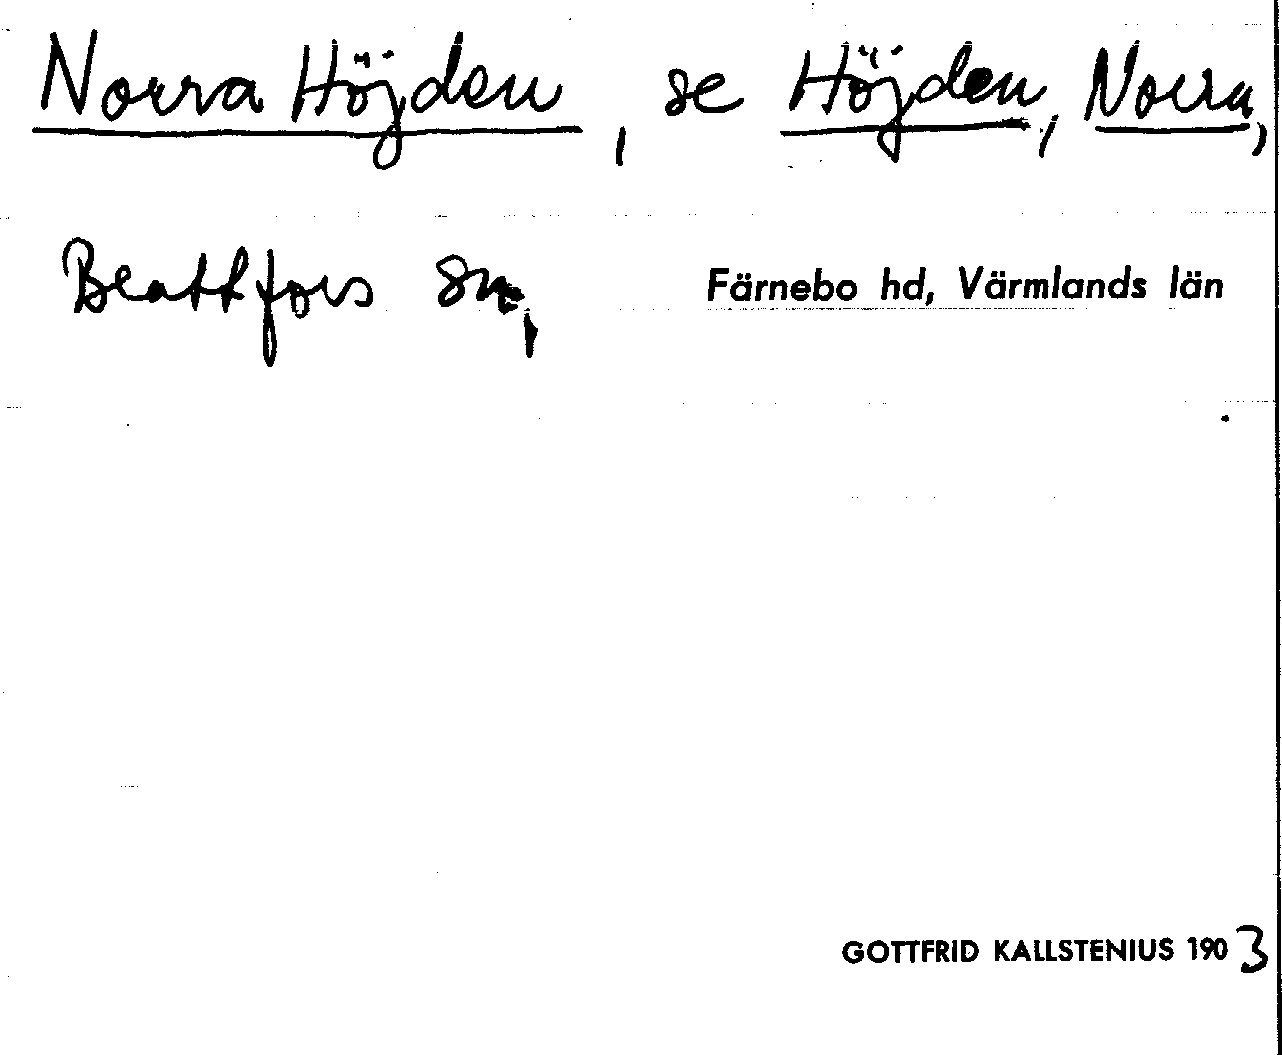 Norra Höjden, se Höjden, Norra,
Brattfors sn, Färnebo hd, Värmlands län
GOTTFRID KALLSTENIUS 1903